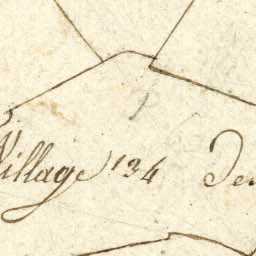 Village 134 De